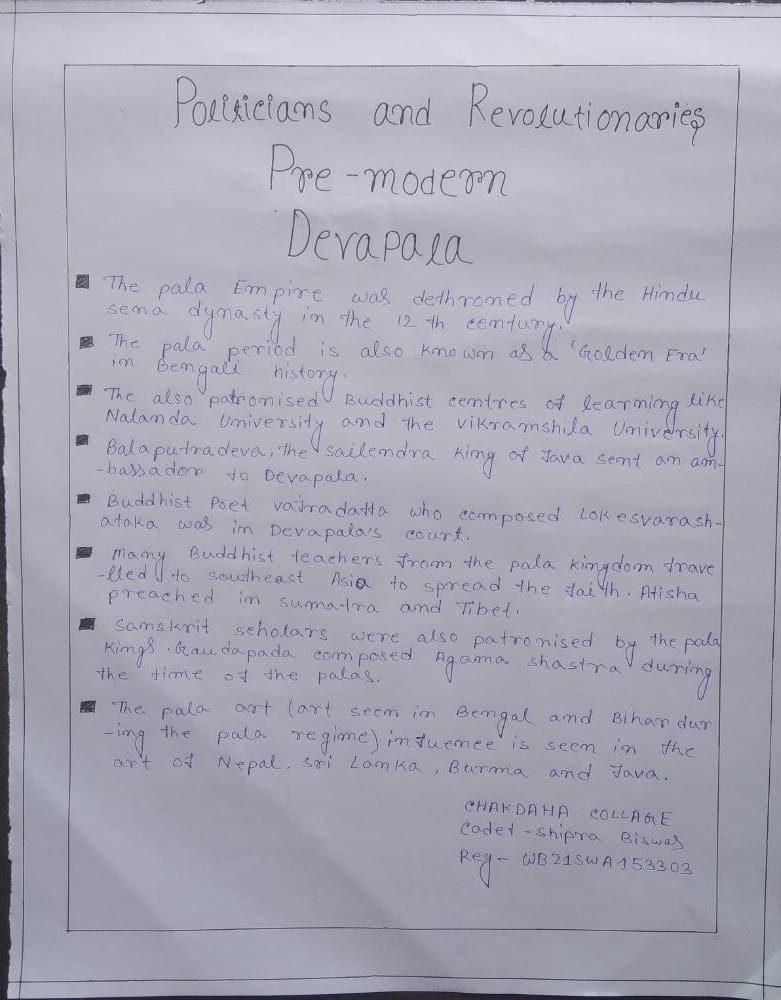 Politicians and Revolutionaries
Pre-modern
Devapala
■ The pala Empire was dethroned by the Hindu
sena dynasty in the 12 th century.
■ The pala period is also known as a 'Golden Era'
in Bengali history.
■ The also patronised Buddhist centres of learning like
Nalanda University and the Vikramshila University.
■ Balaputradeva, the sailendra King of Java sent an am-
-bassador to Devapala.
■ Buddhist Poet vajradatta who composed Lokesvarash-
ataka was in Devapala's court.
■ many Buddhist teachers from the pala kingdom trave
-lled to southeast Asia to spread the faith. Atisha
preached in sumatra and Tibet.
■ Samskrit scholars were also patronised by the pala
Kings. Gaudapada composed Agama shastra during
the time of the palas.
■ The pala art (art seen in Bengal and Bihar dur
-ing the pala regime) influence is seen in the
art of Nepal. Sri Lanka, Burma and Java.
CHAKDAHA COLLAGE
Cadet - Shipra Biswas
Reg - WB21SWA153303